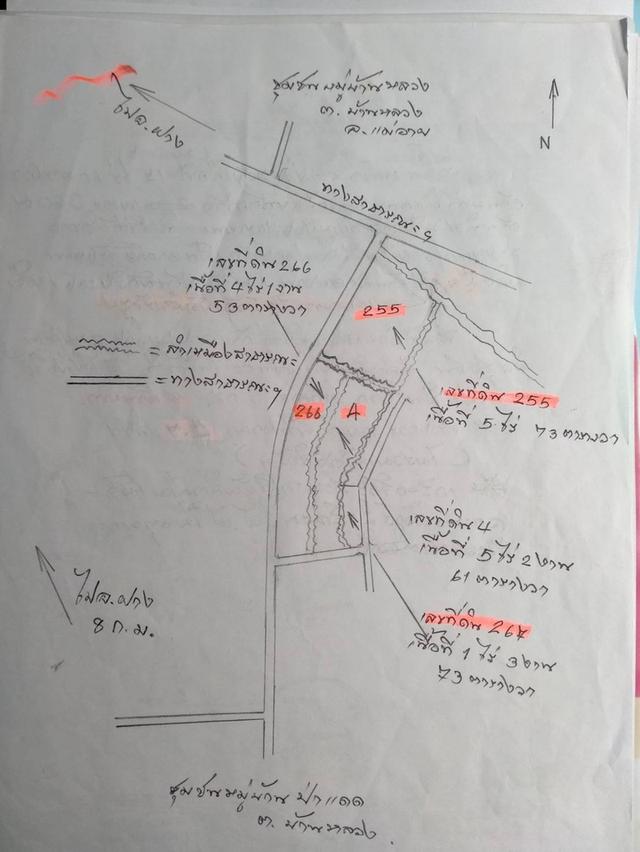 ชุมชนหมู่บ้านหลวง
ต. บ้านหลวง
อ. แม่อาย
N
ไป อ. ฝาง
ทางสาธารณะฯ
เลขที่ดิน 266
เนื้อที่ 4 ไร่ 1 งาน
53 ตารางวา
255
= ลำเหมืองสาธารณะ
= ทางสาธารณะฯ
266
A
เลขที่ดิน 255
เนื้อที่ 5 ไร่ 73 ตารางวา
เลขที่ดิน 4
เนื้อที่ 5 ไร่ 2 งาน
61 ตารางวา
ไป อ. ฝาง
8 ก.ม.
เลขที่ดิน 267
เนื้อที่ 1 ไร่ 3 งาน
73 ตารางวา
ชุมชนหมู่บ้าน ป่าแดด
ต. บ้านหลวง